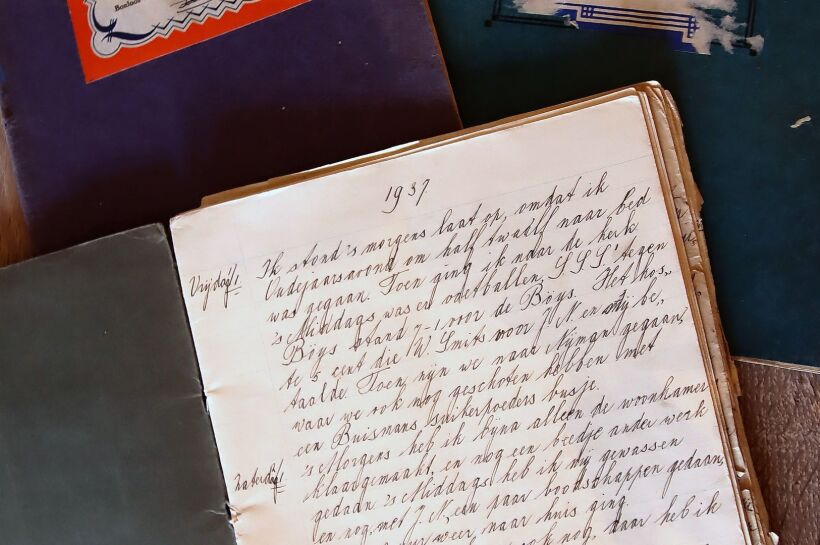 Bonloos
1937
Vrijdag 1. Ik stond 's morgens laat op, omdat ik
Oudejaarsavond om half twaalf naar bed
was gegaan. Toen ging ik naar de kerk
's Middags was er voetballen. S.S.S. tegen
Böys stand 7-1 voor de Böys. Het kos„
te 5 cent die W. Smits voor J. N. en mij be„
taalde. Toen zijn we naar Nyman gegaan,
waar we ook nog geschoten hebben met
een Buismans suikerpoeders busje.
Zaterdag 's Morgens heb ik bijna alleen de woonkamer
klaargemaakt, en nog een beetje ander werk
gedaan 's Middags heb ik mij gewassen
en nog met J. N. een paar boodschappen gedaan,
weer, naar huis ging.
ook nog, daar heb ik